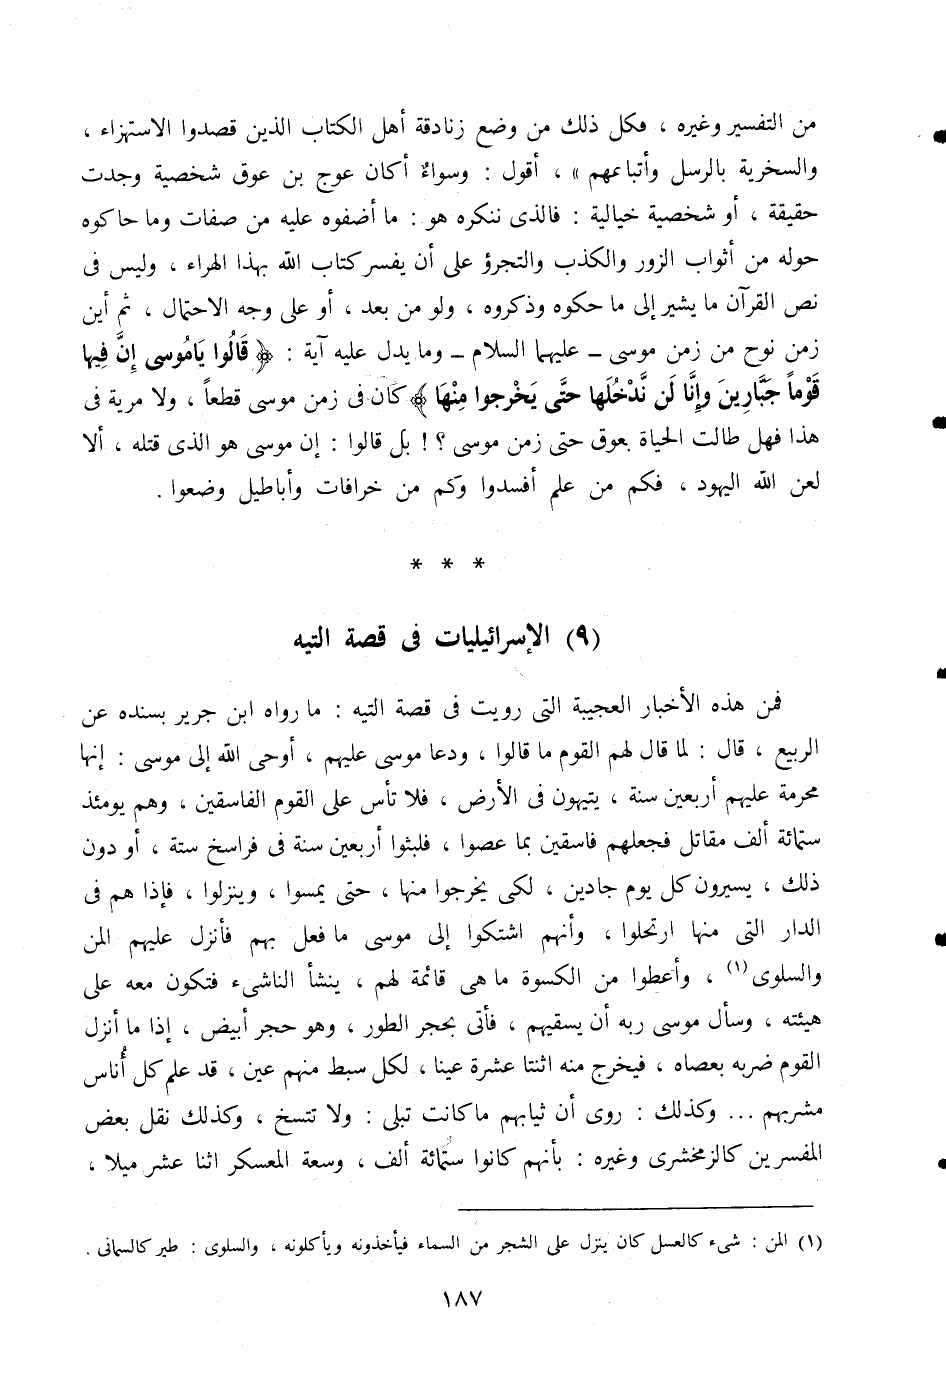 من التفسير وغيره ، فكل ذلك من وضع زنادقة أهل الكتاب الذين قصدوا الاستهزاء ،
والسخرية بالرسل وأتباعهم » ، أقول : وسواءٌ أكان عوج بن عوق شخصية وجدت
حقيقة ، أو شخصية خيالية : فالذى ننكره هو : ما أضفوه عليه من صفات وما حاكوه
حوله من أثواب الزور والكذب والتجرؤ على أن يفسر كتاب الله بهذا الهراء ، وليس فى
نص القرآن ما يشير إلى ما حكوه وذكروه ، ولو من بعد ، أو على وجه الاحتمال ، ثم أين
زمن نوح من زمن موسى – عليهما السلام – وما يدل عليه آية : ﴿ قَالُوا يَامُوسى إِنَّ فِيها
قَوْماً جَبَّارِينَ وإِنَّا لَن نَّدْخُلَها حتَّى يَخْرجوا مِنْهَا ﴾ كان فى زمن موسى قطعاً ، ولا مرية فى
هذا فهل طالت الحياة بعوق حتى زمن موسى ؟ ! بل قالوا : إن موسى هو الذى قتله ، ألا
لعن الله اليهود ، فكم من علم أفسدوا وكم من خرافات وأباطيل وضعوا .
* * *
(٩) الإسرائيليات فى قصة التيه
فمن هذه الأخبار العجيبة التى رويت فى قصة التيه : ما رواه ابن جرير بسنده عن
الربيع ، قال : لما قال لهم القوم ما قالوا ، ودعا موسى عليهم ، أوحى الله إلى موسى : إنها
محرمة عليهم أربعين سنة ، يتيهون فى الأرض ، فلا تأس على القوم الفاسقين ، وهم يومئذ
ستمائة ألف مقاتل فجعلهم فاسقين بما عصوا ، فلبثوا أربعين سنة فى فراسخ ستة ، أو دون
ذلك ، يسيرون كل يوم جادين ، لكى يخرجوا منها ، حتى يمسوا ، وينزلوا ، فإذا هم فى
الدار التى منها ارتحلوا ، وأنهم اشتكوا إلى موسى ما فعل بهم فأنزل عليهم المن
والسلوى (١) ، وأعطوا من الكسوة ما هى قائمة لهم ، ينشأ الناشىء فتكون معه على
هيئته ، وسأل موسى ربه أن يسقيهم ، فأتى بحجر الطور ، وهو حجر أبيض ، إذا ما أنزل
القوم ضربه بعصاه ، فيخرج منه اثنتا عشرة عينا ، لكل سبط منهم عين ، قد علم كل أُناس
مشربهم ... وكذلك : روى أن ثيابهم ما كانت تبلى : ولا تتسخ ، وكذلك نقل بعض
المفسرين كالزمخشرى وغيره : بأنهم كانوا ستُمائة ألف ، وسعة المعسكر اثنا عشر ميلا ،
(١) المن : شىء كالعسل كان ينزل على الشجر من السماء فيأخذونه ويأكلونه ، والسلوى : طير كالسمانى .
١٨٧